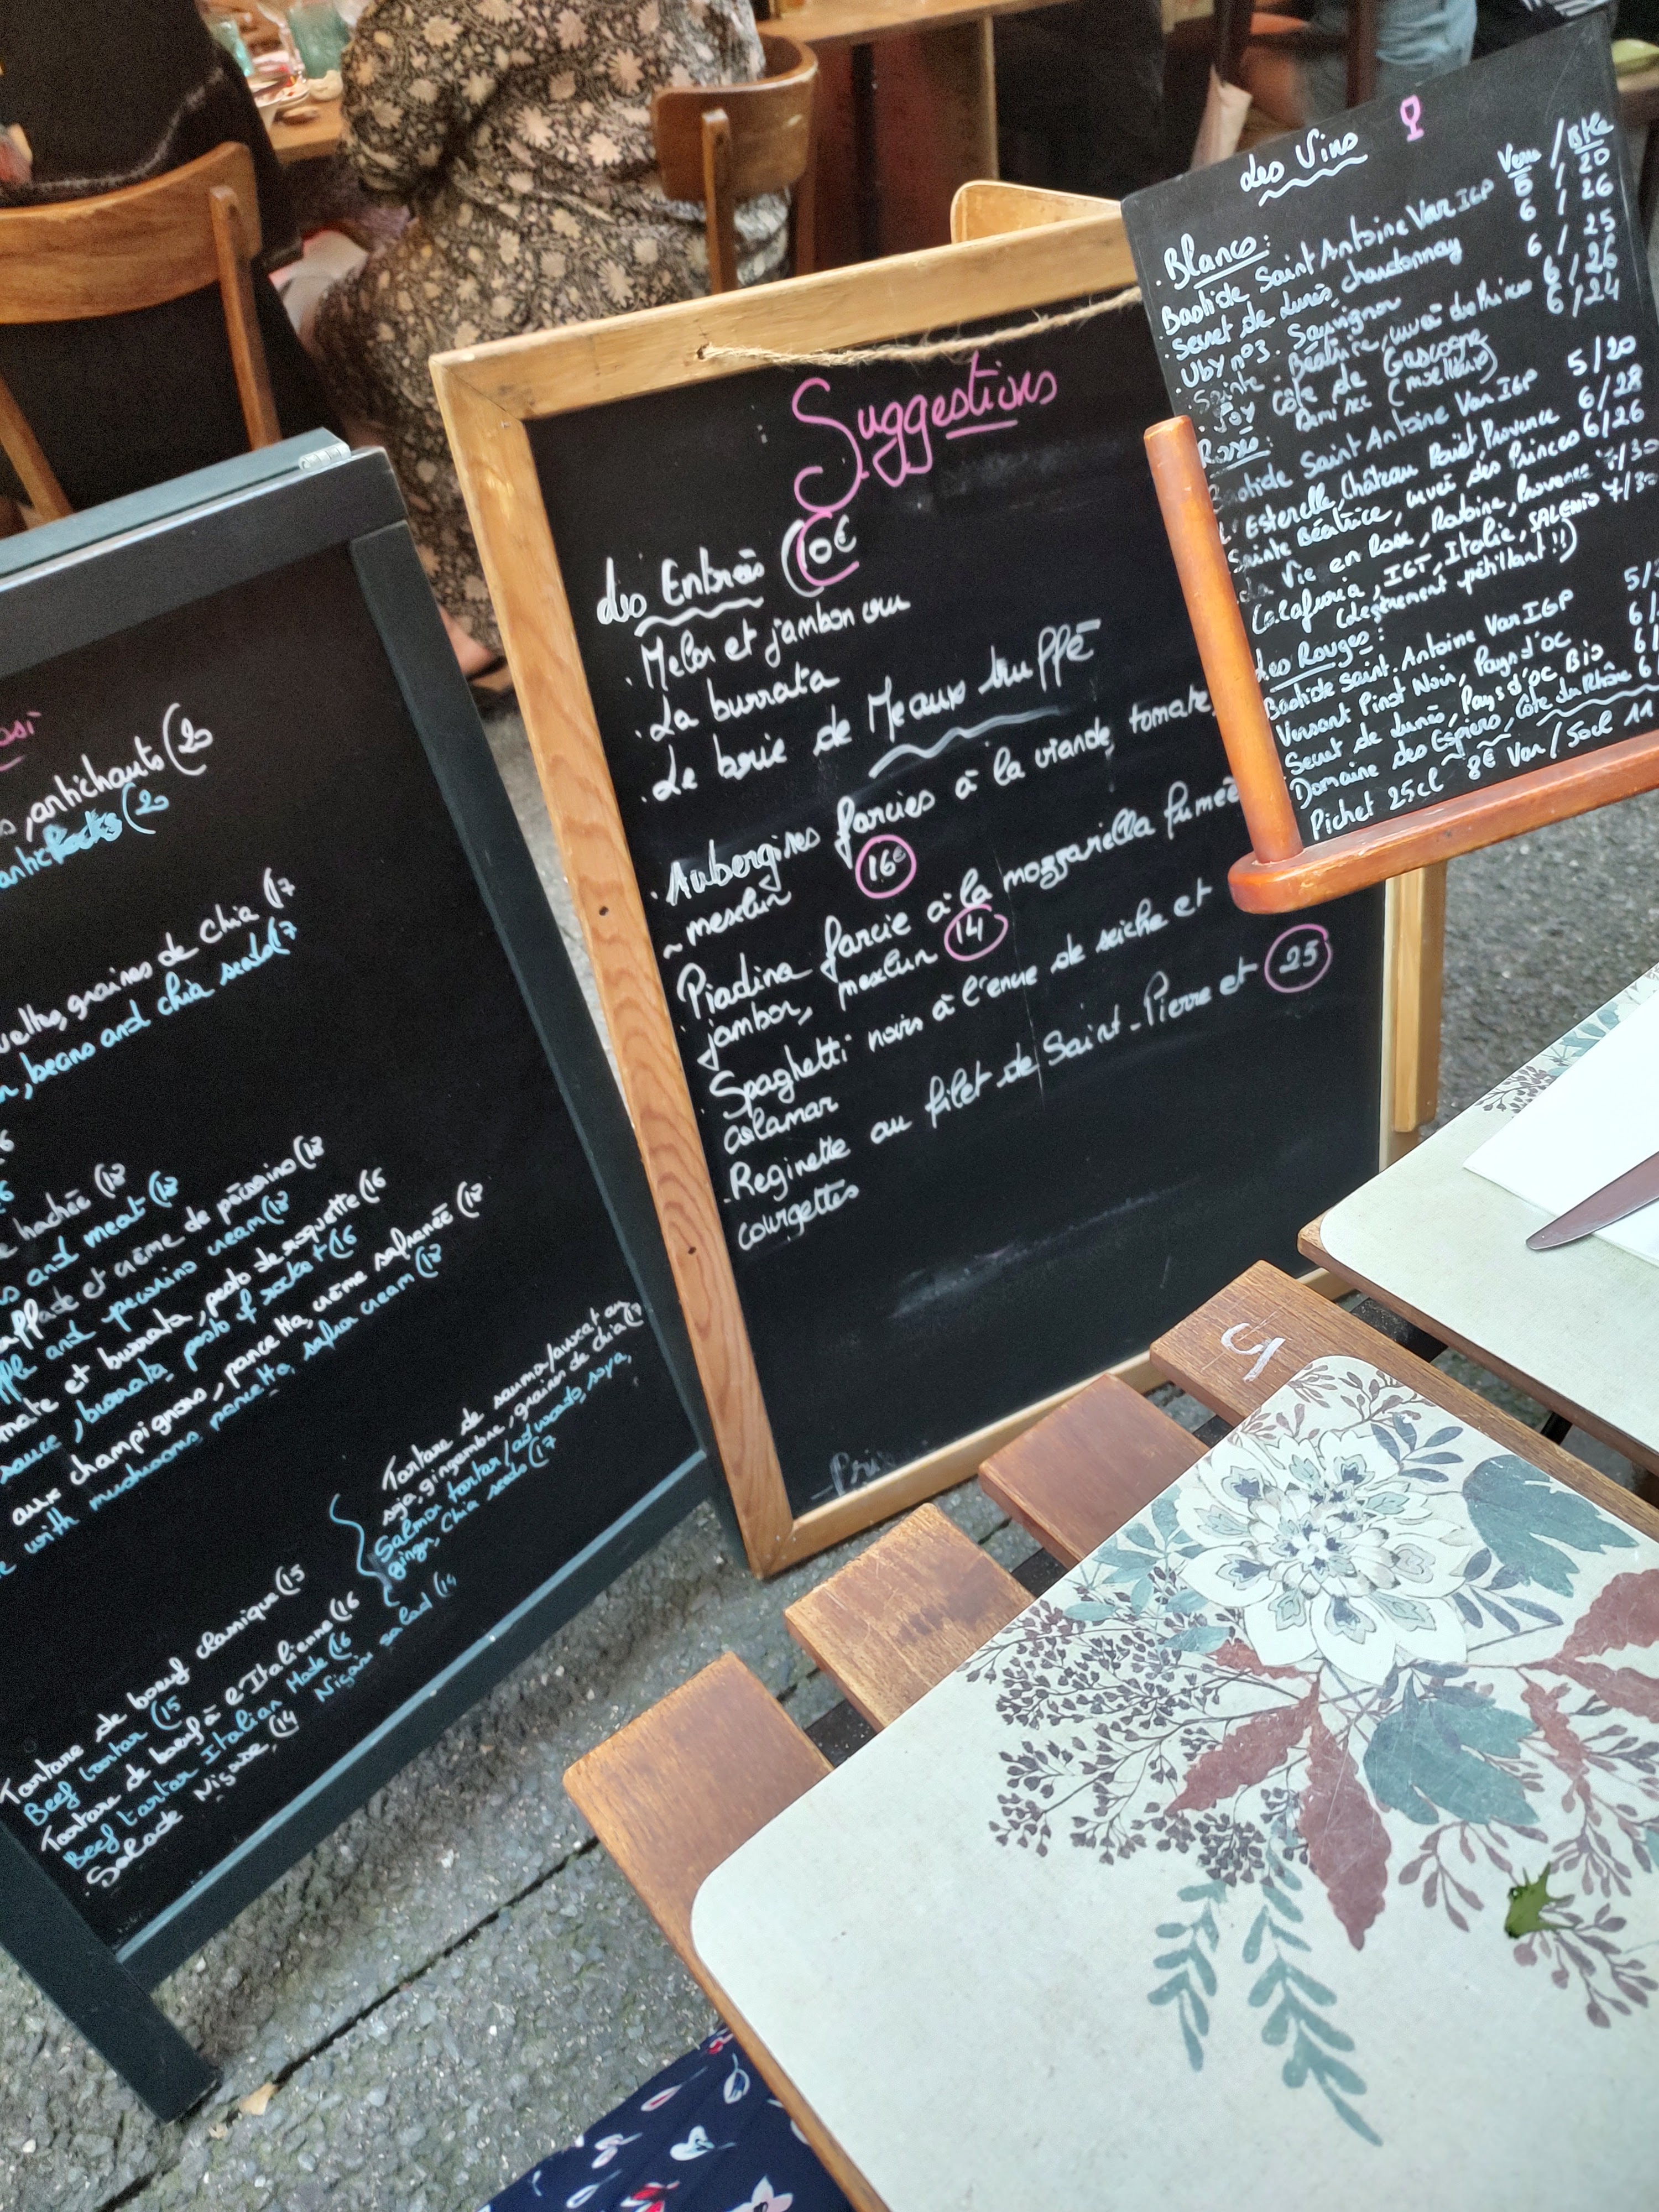 osi
, antichauts (20
(20
uettes, graines de chia (17
, beans and chia seeds (17
hachée (18
and meat (18
et crème de pecorino (18
and pecorino cream (18
mate et burrata, pesto de roquette (16
sauce, burrata, pesto of rocket (16
aux champignons, pancetta, crème safranée (18
with mushrooms, pancetta, safran cream (18
Tartare de saumon/avocat au
soja, gingembre, graines de chia (17
Salmon tartar/advocado, soya,
Ginger, Chia seeds (17
Tartare de bœuf classique (15
Beef tartar (15
Tartare de bœuf à l'Italienne (16
Beef tartar Italian Made (16
Salade Niçoise, (14
Niçoise salad (14
Suggestions
des Entrées (10€
. Melon et jambon cru
. La burrata
. Le brie de Meaux truffé
. Aubergines farcies à la viande, tomate,
mesclun 16€
. Piadina farcie à la mozzarella fumée
jambon, mesclun 14
. Spaghetti noirs à l'encre de seiche et
calamar
. Reginette au filet de Saint-Pierre et 25
courgettes
des Vins
Verre / Btle
. Blancs:
Bastide Saint Antoine Var IGP 5 / 20
. Secret de Lunès, chardonnay 6 / 26
. Uby n°3. Sauvignon 6 / 25
. Sainte Béatrice, cuvée des Princes 6 / 26
Côte de Gascogne 6 / 24
(moelleux)
Rosés:
Bastide Saint Antoine Var IGP 5/20
L'Esterelle, Château Provence 6/28
Sainte Béatrice, cuvée des Princes 6/26
La Vie en Rose, Roubine, Provence 7/30
IGT, Italie, SALENTO 7/30
(légèrement pétillant!!)
Les Rouges:
Bastide Saint. Antoine Var IGP 5/
Versant Pinot Noir, Pays d'oc 6/
Secret de Lunès, Pays d'oc Bio 6/
Domaine des Espiers, Côte du Rhône 6/
Pichet 25cl 8€ Var / 50cl 11